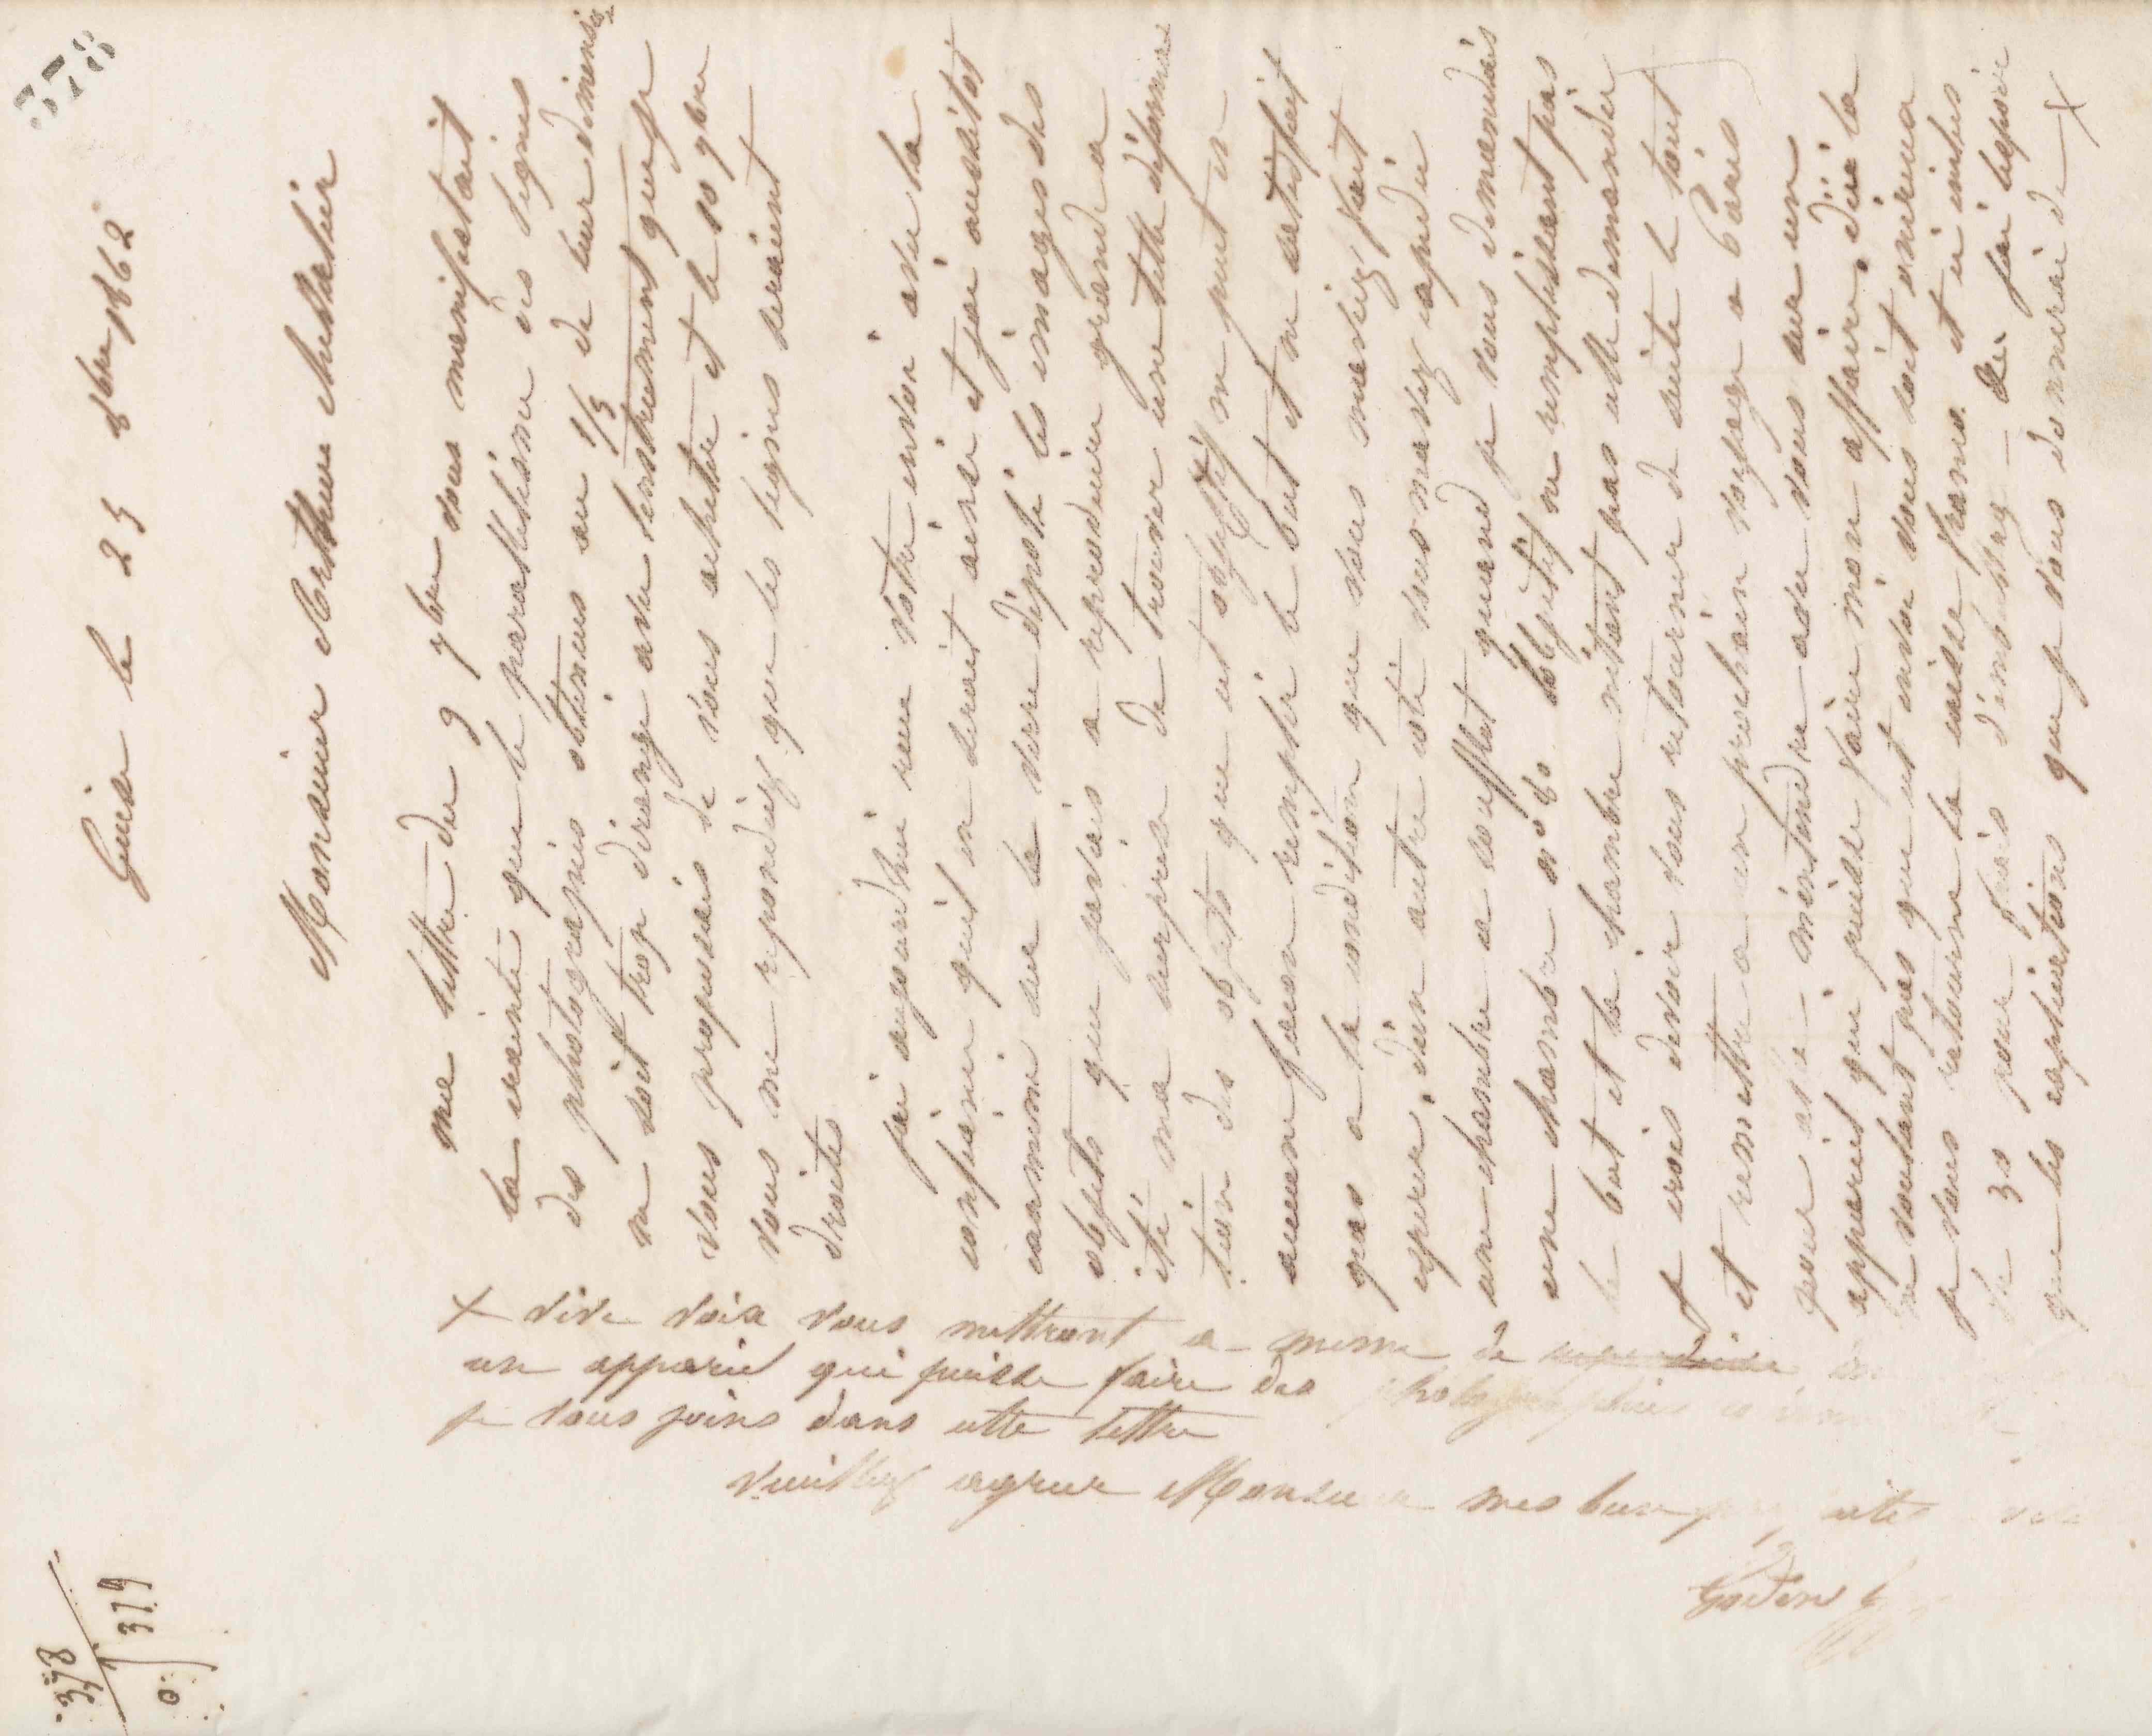 378
Guise le 23 8bre 1862
Monsieur Arthur Chevalier
ma lettre du 9 9bre vous manifestait
la crainte que le parallelisme des lignes
des photographies obtenues au 1/5 de leur dimension
ne soit trop dérangé avec linstrument que je
vous proposais de vous acheter et le 10 9bre
vous me repondiez que les lignes seraient
droites
jai aujourdhui reçu votre envoi avec la
confiance quil en serait ainsi et jai aussitot
examiné sur le verre dépoli les images des
objets que javais a reproduire grande a
été ma surprise de trouver une telle déforma
tion des objets que cet objectif ne peut en
aucune façon remplir le but et ne satisfait
pas a la condition que vous maviez fait
esperer, dun autre coté vous mavez expedié
une chambre a soufflet quand je vous demandais
une chambre n° 80 lobjectif ne remplissant pas
le but et la chambre nétant pas celle demandée
je crois devoir vous retourner de suite le tout
et remettre a un prochain voyage a Paris
pour aller mentendre avec vous sur un
appareil qui puisse faire mon affaire. Dici la
ne voulant pas que cet envoi vous soit onéreux
je vous retourne la caisse franco et ci inclus
30 pour frais demballage – jai lespoir
que les explications que je vous donnerai de X
X vive voix vous mettront a meme de
un appareil qui puisse faire des photographies
je vous joins dans cette lettre
Veuillez agreer Monsieur mes
Godin
378
379
0